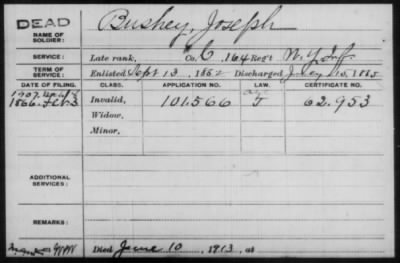 DEAD
NAME OF SOLDIER: Bushey, Joseph
SERVICE: Late rank, Co. C, 164 Reg't N.Y. Inf.
TERM OF SERVICE: Enlisted Sept 13, 1862 Discharged July 15, 1865
DATE OF FILING. CLASS. APPLICATION NO. LAW. CERTIFICATE NO.
1907
1866. Feb 3 Invalid, 101.566 62.953
Widow,
Minor,
ADDITIONAL SERVICES:
REMARKS:
Died June 10, 1913, at